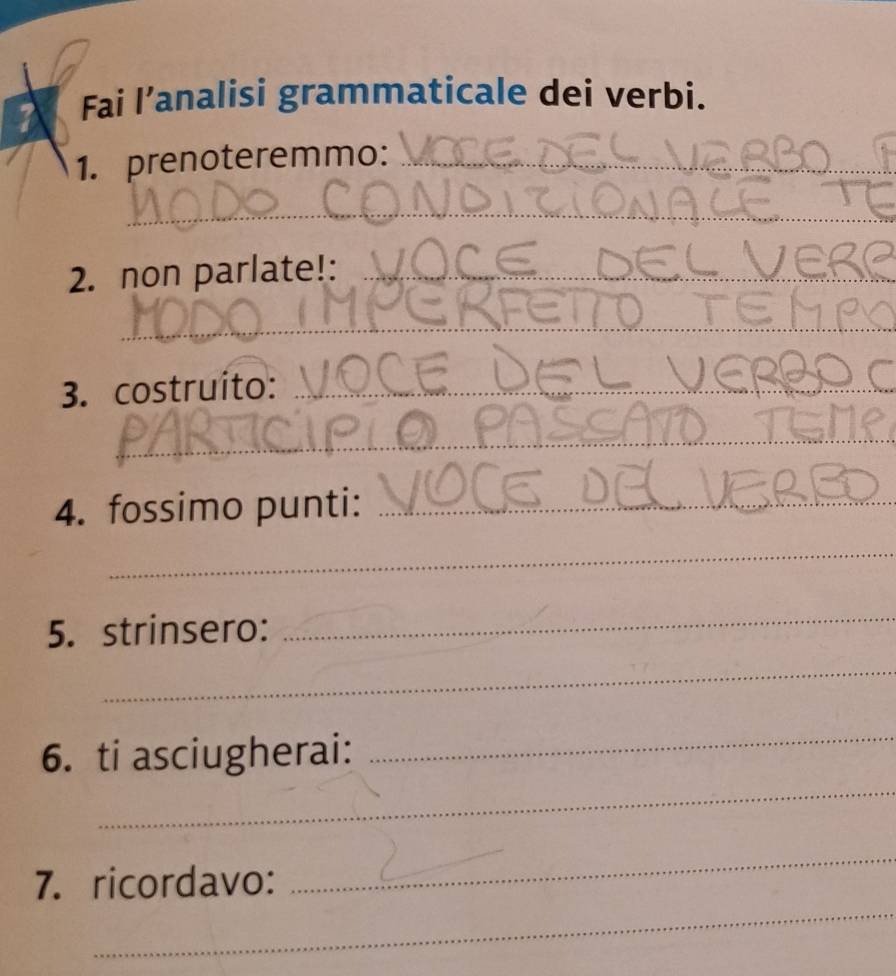 7 Fai l'analisi grammaticale dei verbi.
1. prenoteremmo: VOCE DEL VERBO
MODO CONDIZIONALE TE
2. non parlate!: VOCE DEL VERB
MODO IMPERFETTO TEMPO
3. costruito: VOCE DEL VERBO C
PARTICIPIO PASSATO TEMP
4. fossimo punti: VOCE DEL VERBO
5. strinsero:
6. ti asciugherai:
7. ricordavo: